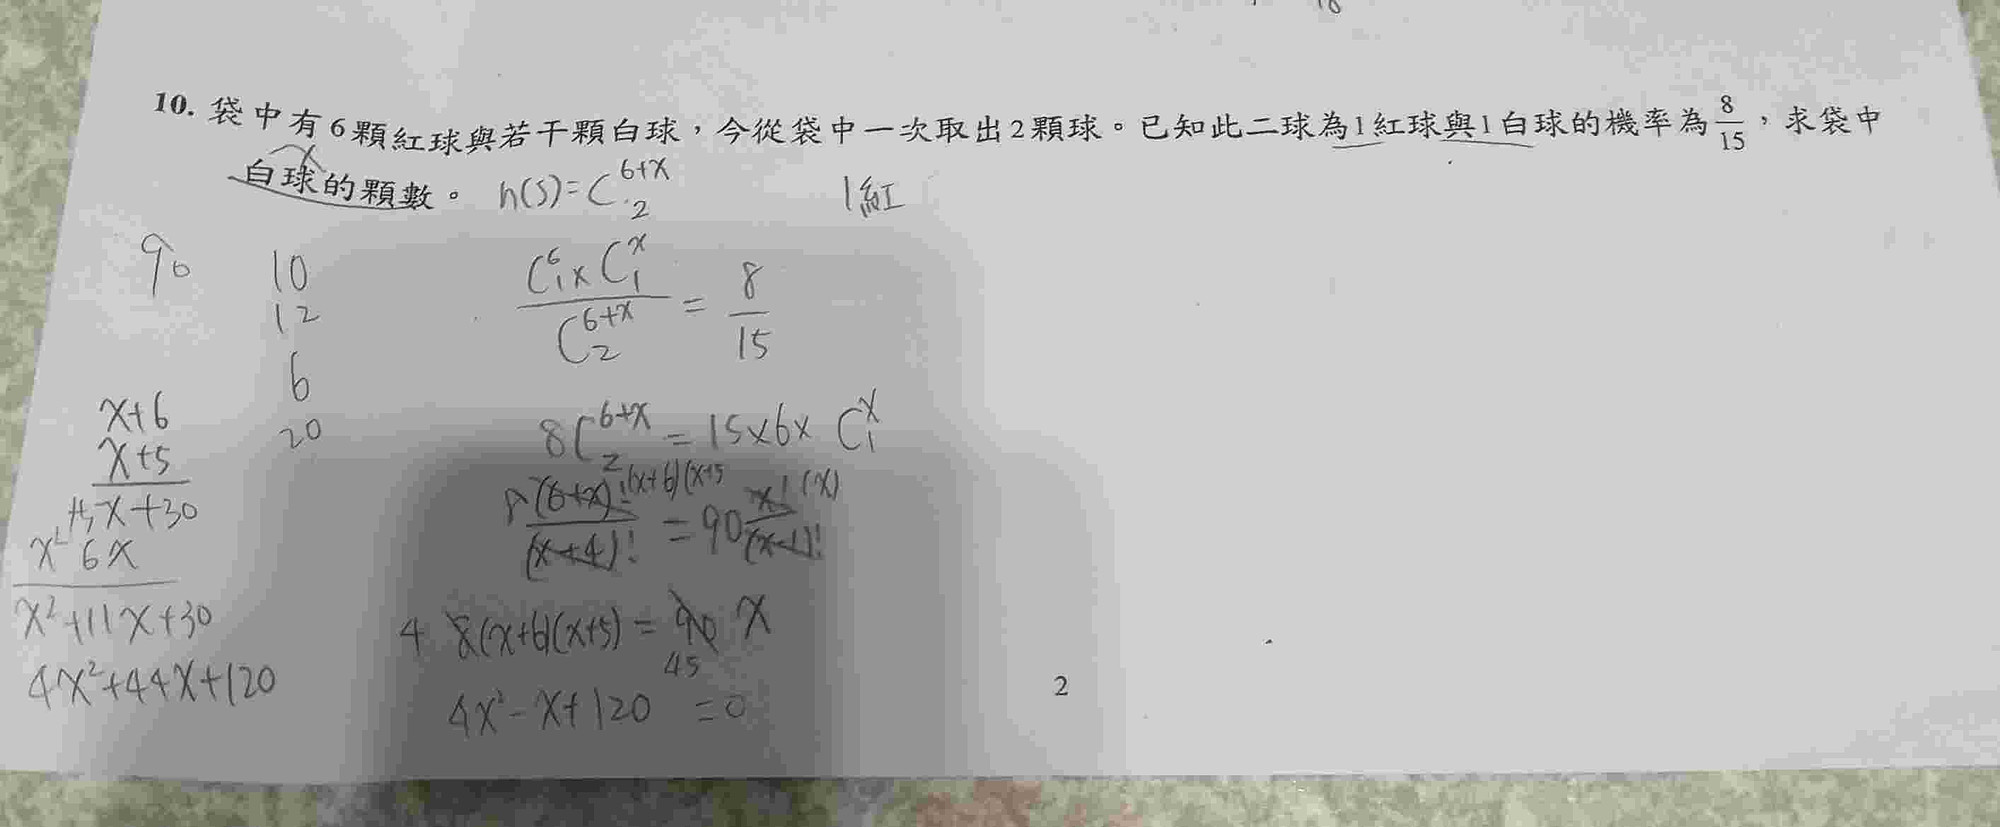 10. 袋中有6顆紅球與若干顆白球，今從袋中一次取出2顆球。已知此二球為1紅球與1白球的機率為8/15，求袋中
x
白球的顆數。 n(S)=C^{6+x}_2 1紅
90 10
12
6
20
C^6_1 x C^x_1 / C^{6+x}_2 = 8/15
8C^{6+x}_2 = 15x6x C^x_1
(6+x)! (x+6)(x+5 / (x+4)! = 90 x! (x) / (x-1)!
4 8(x+6)(x+5) = 90 x
45
4x²-x+120 =0
x+6
x+5
x+30
x² 6x
x²+11x+30
4x²+44x+120
2